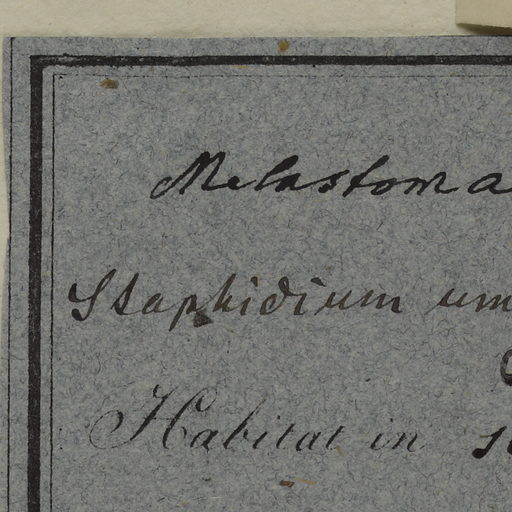 Melastoma
Staphidium um
Habitat in